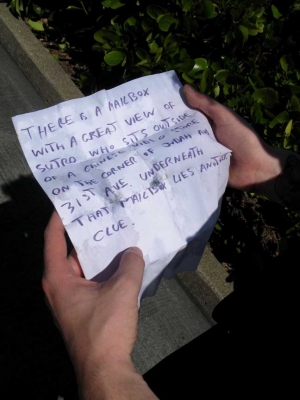 THERE IS A MAILBOX
WITH A GREAT VIEW OF
SUTRO WHO SITS OUTSIDE
OF A CHINESE VIDEO STORE
ON THE CORNER OF
31ST AVE. UNDERNEATH
THAT MAILBOX LIES ANOTHER
CLUE.